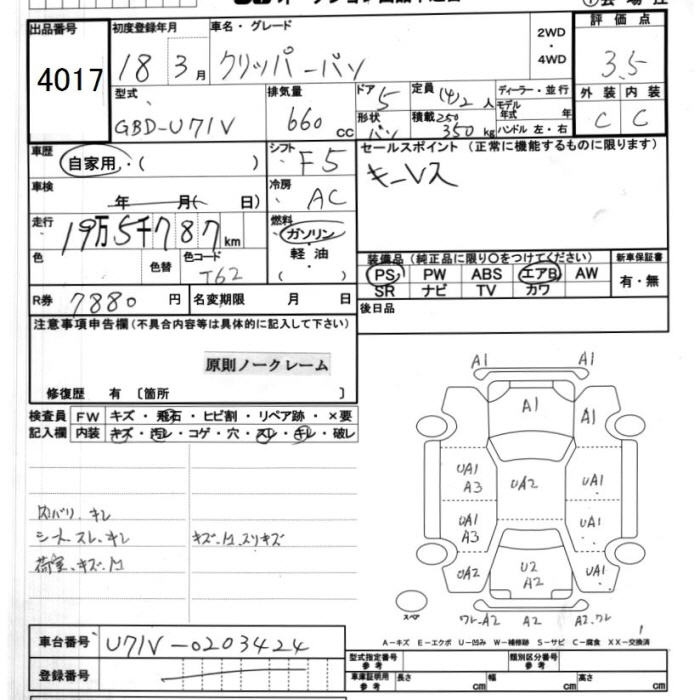 出品番号
4017
初度登録年月
18年3月
車名・グレード
クリッパーバン
2WD
・
4WD
評価点
3.5
型式
GBD-U71V
排気量
660 cc
ドア
5
形状
バン
定員
(4)2 人
積載
250
350 kg
ディーラー・並行
モデル
年式 年
ハンドル 左・右
外装 内装
C C
車歴
自家用・( )
シフト
F5
セールスポイント (正常に機能するものに限ります)
キーレス
車検
年 月( 日)
冷房
AC
走行
19万5千787km
燃料
ガソリン
・
軽油
( )
色
色替
色コード
T62
装備品 (純正品に限り〇をつけてください)
PS PW ABS エアB AW
SR ナビ TV カワ
新車保証書
有・無
R券 7880 円
名変期限 月 日
後日品
注意事項申告欄(不具合内容等は具体的に記入して下さい)
原則ノークレーム
修復歴 有 〔箇所 〕
検査員 FW キズ・飛石・ヒビ割・リペア跡・×要
記入欄 内装 キズ・汚レ・コゲ・穴・スレ・キレ・破レ
内バリ、キレ
シートスレ、キレ
荷室、キズ、凹
キズ、凹、スリキズ
A1 A1
A1 A1
UA1
A3
UA2
UA1
UA1
A3
UA1
UA2
U2
A2
UA1
スペア
ワレ-A2 A2 A2、ワレ
A-キズ E-エクボ U-凹み W-補修跡 S-サビ C-腐食 XX-交換済
車台番号 U71V-0203424
登録番号
型式指定番号
参考
類別区分番号
参考
車庫証明用
参考
長さ cm 幅 cm 高さ cm